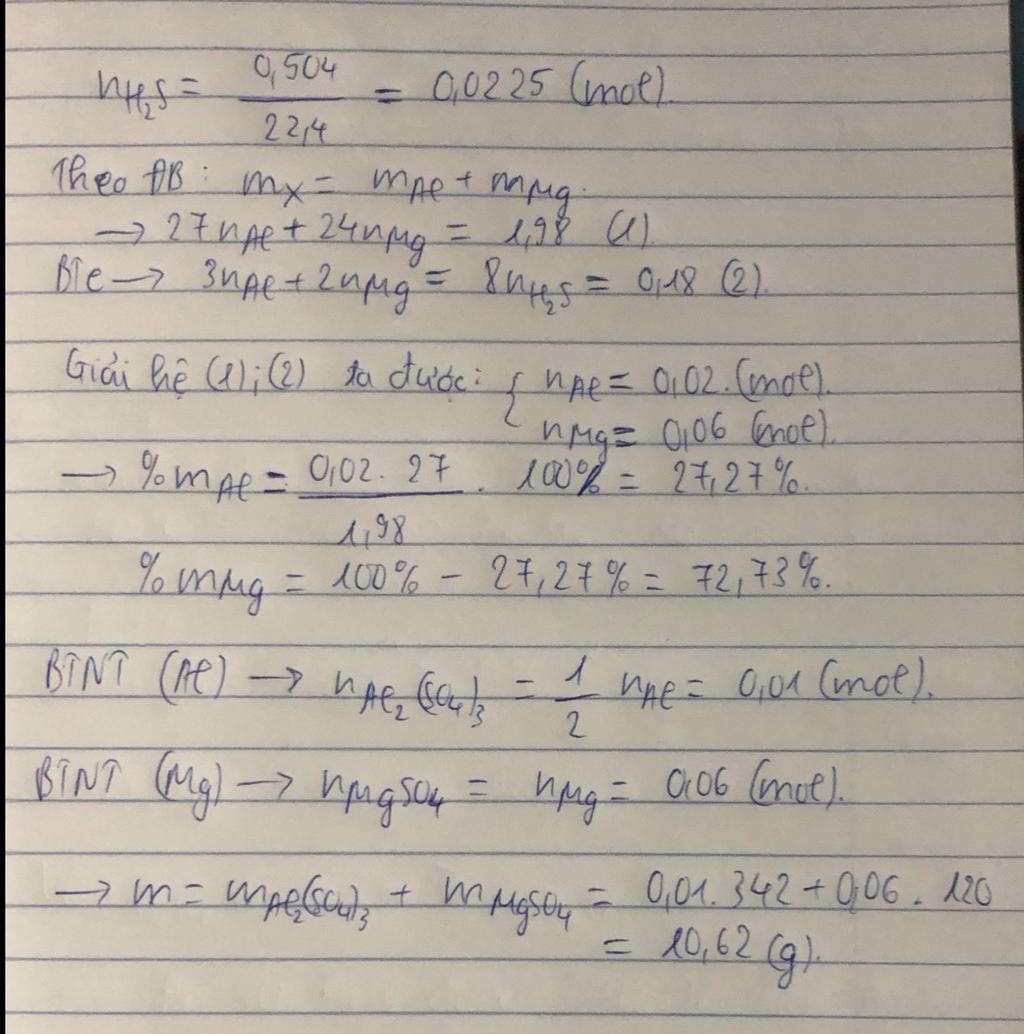 nH₂S = 0,504 / 22,4 = 0,0225 (mol).
Theo ĐB: mX = mAl + mMg.
→ 27nAl + 24nMg = 1,98 (1)
BTe → 3nAl + 2nMg = 8nH₂S = 0,18 (2).
Giải hệ (1);(2) ta được: { nAl = 0,02. (mol).
nMg = 0,06 (mol).
→ %mAl = 0,02. 27 / 1,98 . 100% = 27,27%.
%mMg = 100% - 27,27% = 72,73%.
BTNT (Al) → nAl₂(SO₄)₃ = 1/2 nAl = 0,01 (mol).
BTNT (Mg) → nMgSO₄ = nMg = 0,06 (mol).
→ m = mAl₂(SO₄)₃ + mMgSO₄ = 0,01.342 + 0,06 . 120
= 10,62 (g).